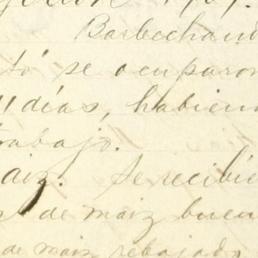 Barbechand
tó se ocuparon
días, habien
trabajo.
aiz. Se recibie
de maiz buen
de maiz rebajado